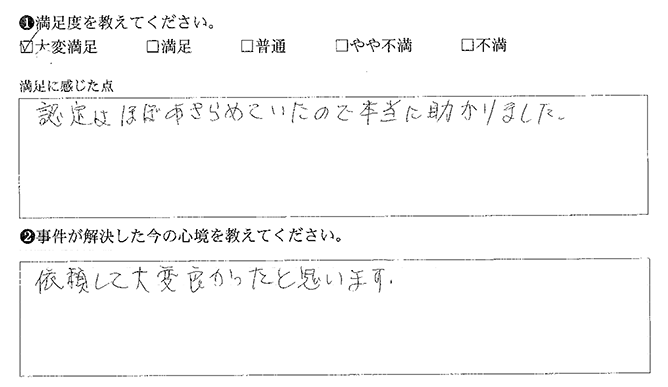 ❶満足度を教えてください。
☑大変満足 □満足 □普通 □やや不満 □不満
満足に感じた点
認定はほぼあきらめていたので本当に助かりました。
❷事件が解決した今の心境を教えてください。
依頼して大変良かったと思います.